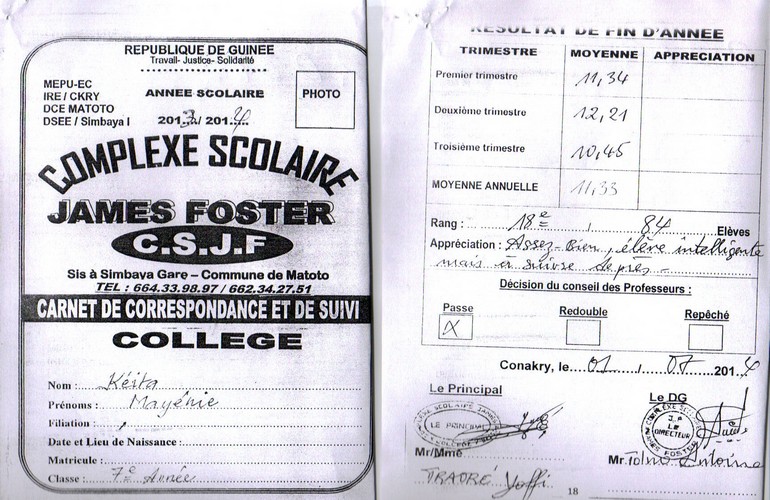 REPUBLIQUE DE GUINEE
Travail- Justice- Solidarité
MEPU-EC
IRE / CKRY
DCE MATOTO
DSEE / Simbaya I
ANNEE SCOLAIRE
2013/ 2014
PHOTO
COMPLEXE SCOLAIRE
JAMES FOSTER
C.S.J.F
Sis à Simbaya Gare – Commune de Matoto
TEL : 664.33.98.97 / 662.34.27.51
CARNET DE CORRESPONDANCE ET DE SUIVI
COLLEGE
Nom : Kéita
Prénoms : Mayénie
Filiation :
Date et Lieu de Naissance :
Matricule :
Classe : 7e Année
RESULTAT DE FIN D'ANNEE
TRIMESTRE MOYENNE APPRECIATION
Premier trimestre 11,34
Deuxième trimestre 12,21
Troisième trimestre 10,45
MOYENNE ANNUELLE 11,33
Rang : 18e / 84 Elèves
Appréciation : Assez-Bien, élève intelligente
mais à suivre de près -
Décision du conseil des Professeurs :
Passe Redouble Repêché
X
Conakry, le 01 / 07 2014
Le Principal Le DG
LE PRINCIPAL
LE DIRECTEUR
Mr/Mme Mr. Tolno Antoine
TRAORÉ Yoffi
18